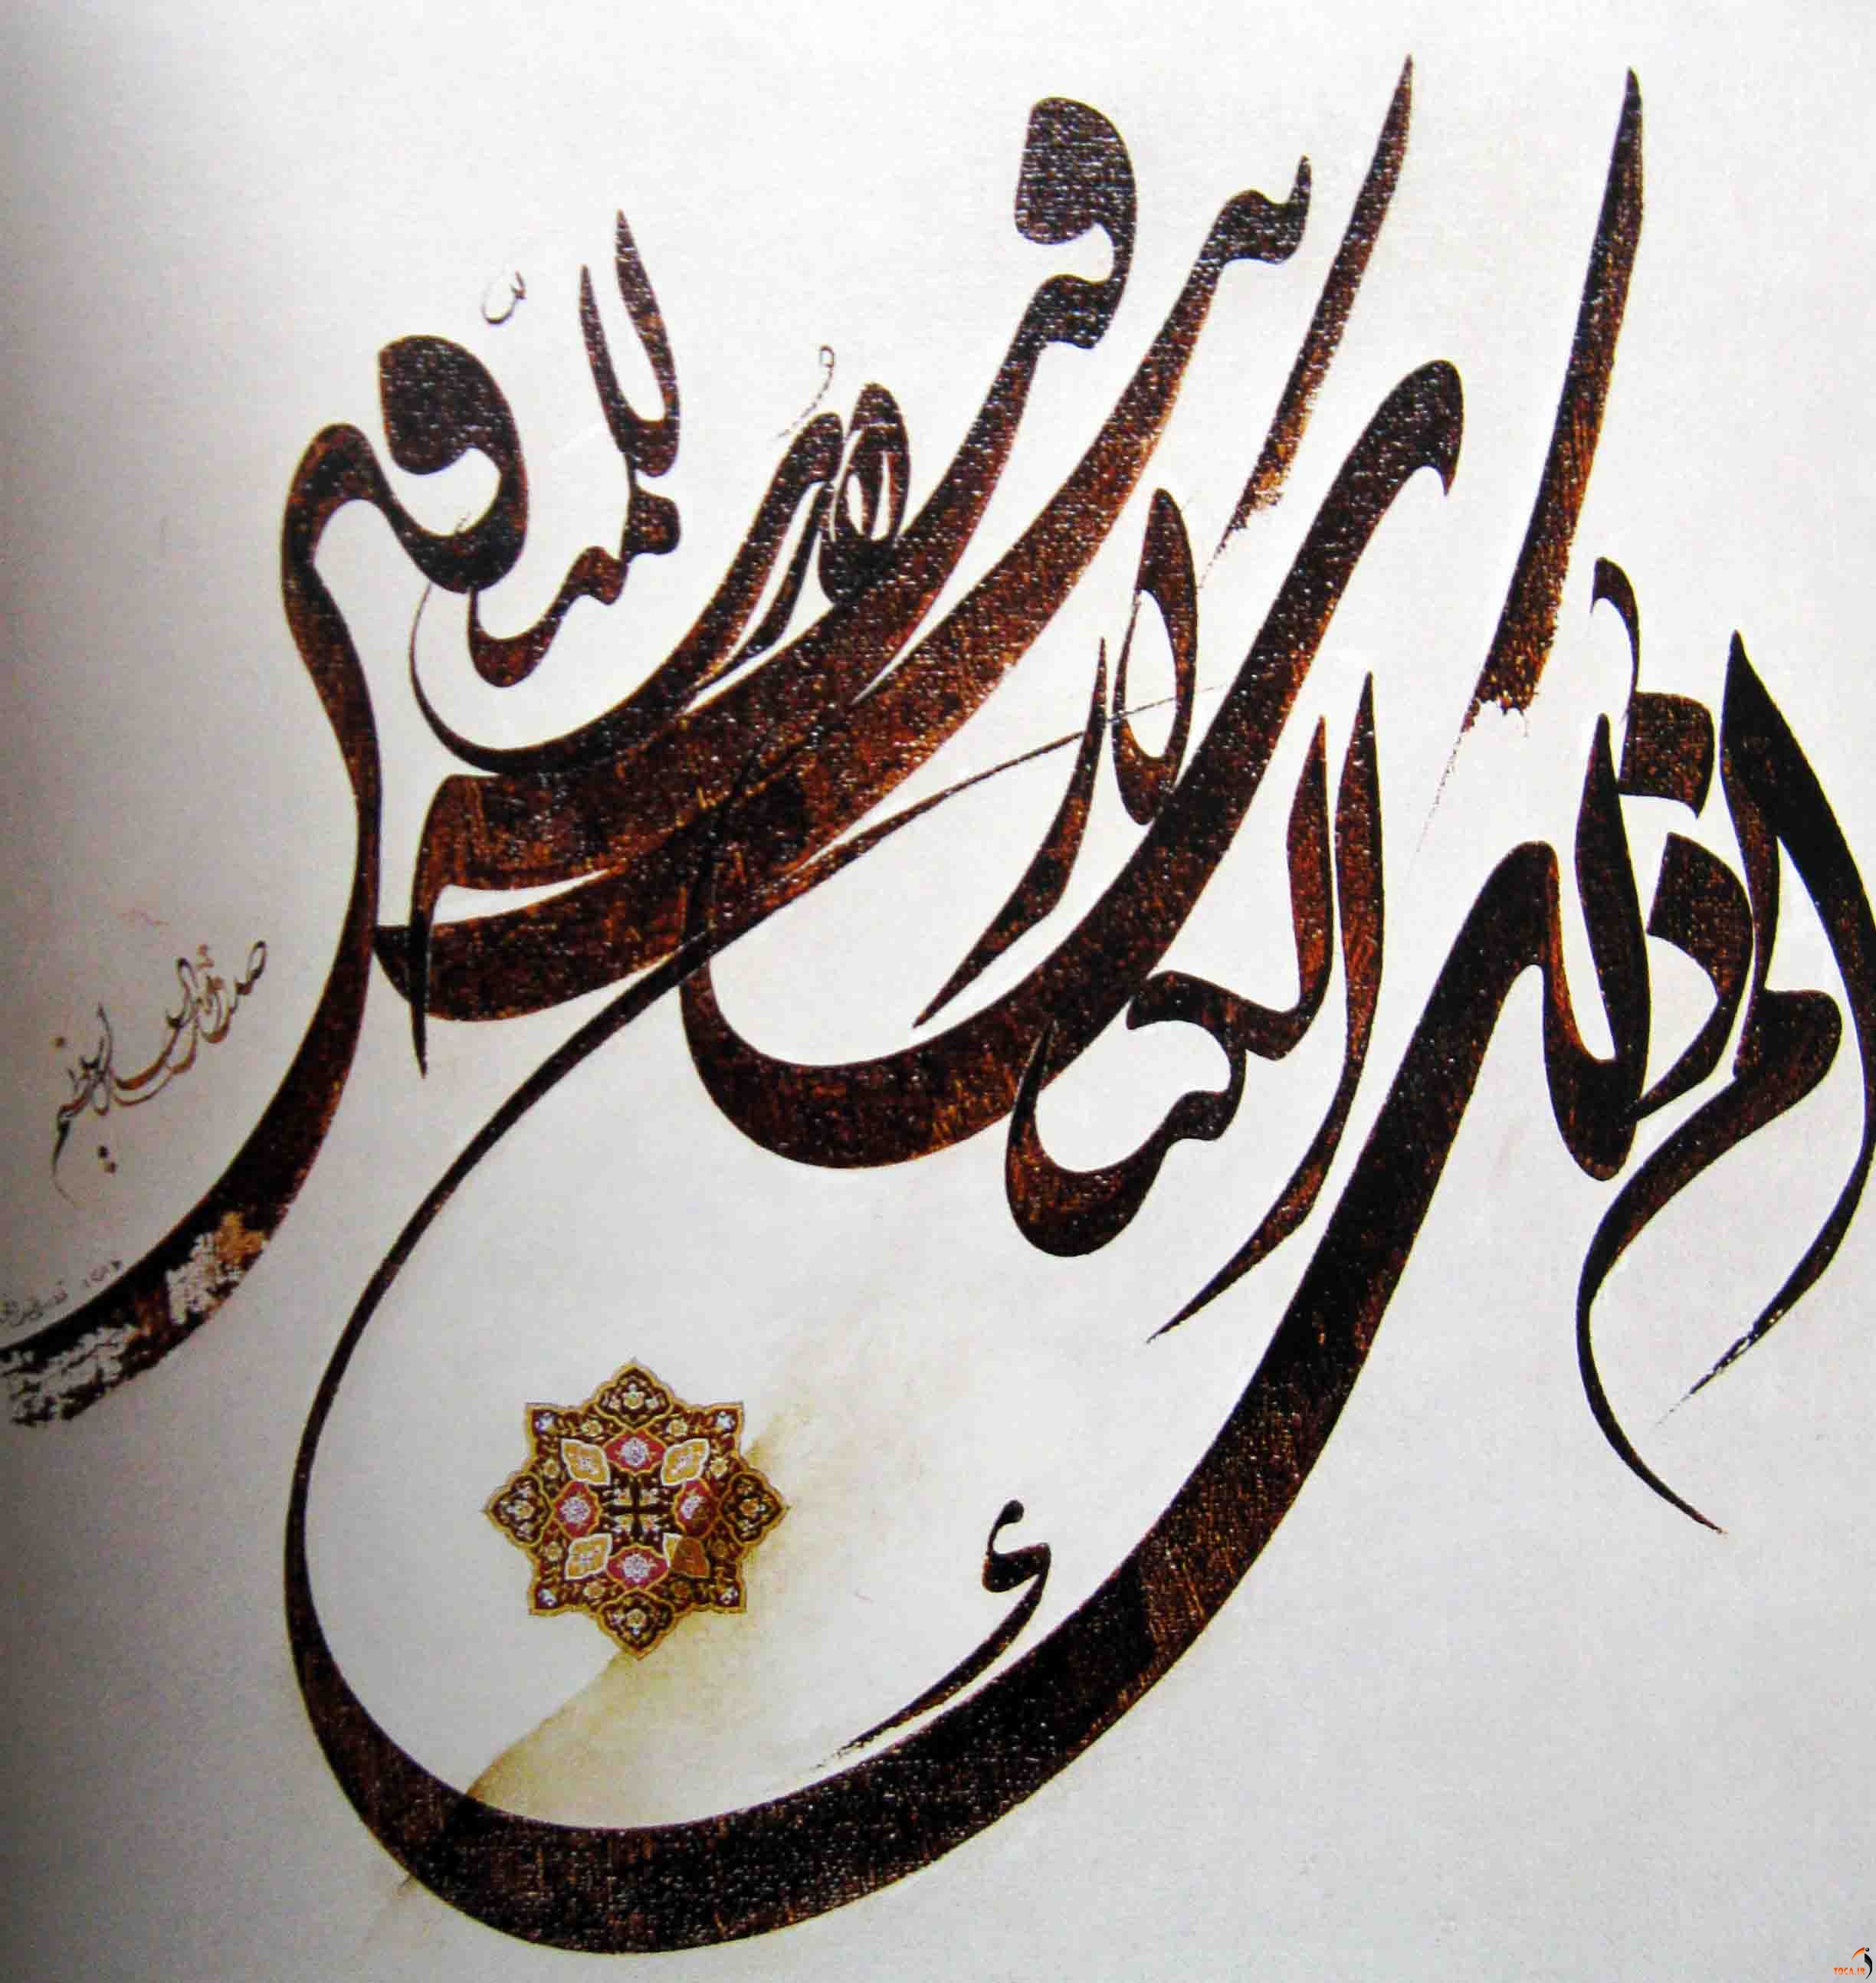 الم ذلک الکتاب لا ریب فیه هدی للمتقین
صدق الله العلی العظیم
TOCA.IR